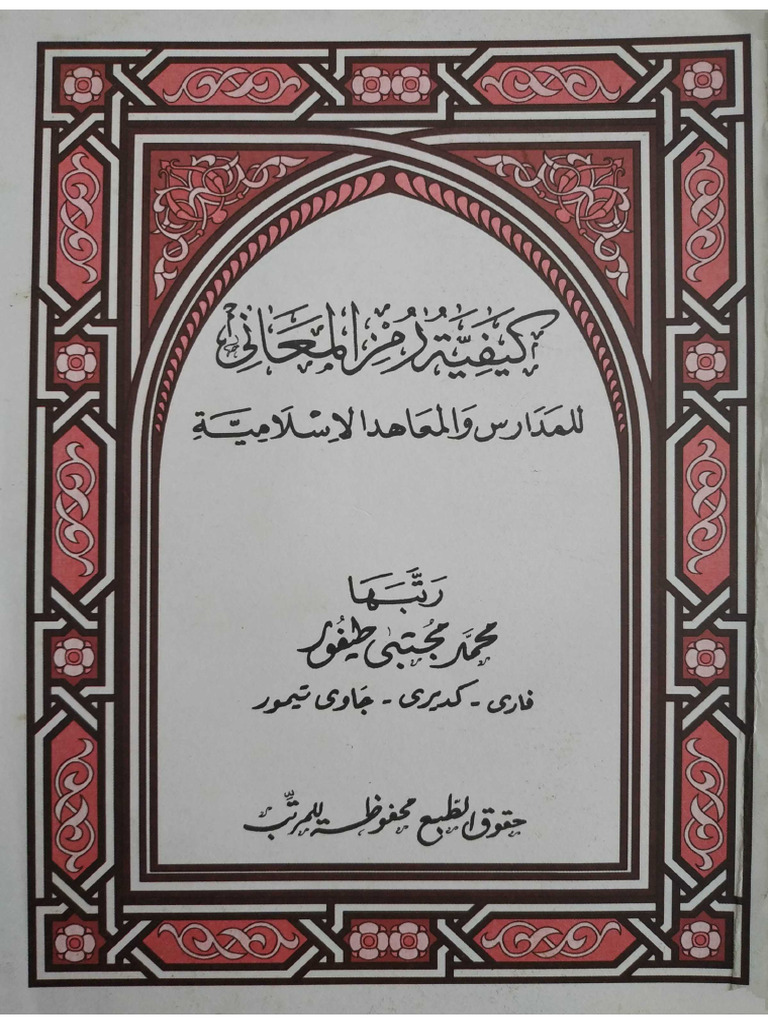 كَيْفِيَّةُ رُمْزِ المَعَانِى
للمَدَارِس وَالمَعَاهِد الإِسْلَامِيَّةِ
رَتَّبَهَا
محمَّد مُجْتَبىٰ طيفُور
فارى - كديرى - جَاوى تيمور
حقوق الطّبع محفوظة للمرتِّب